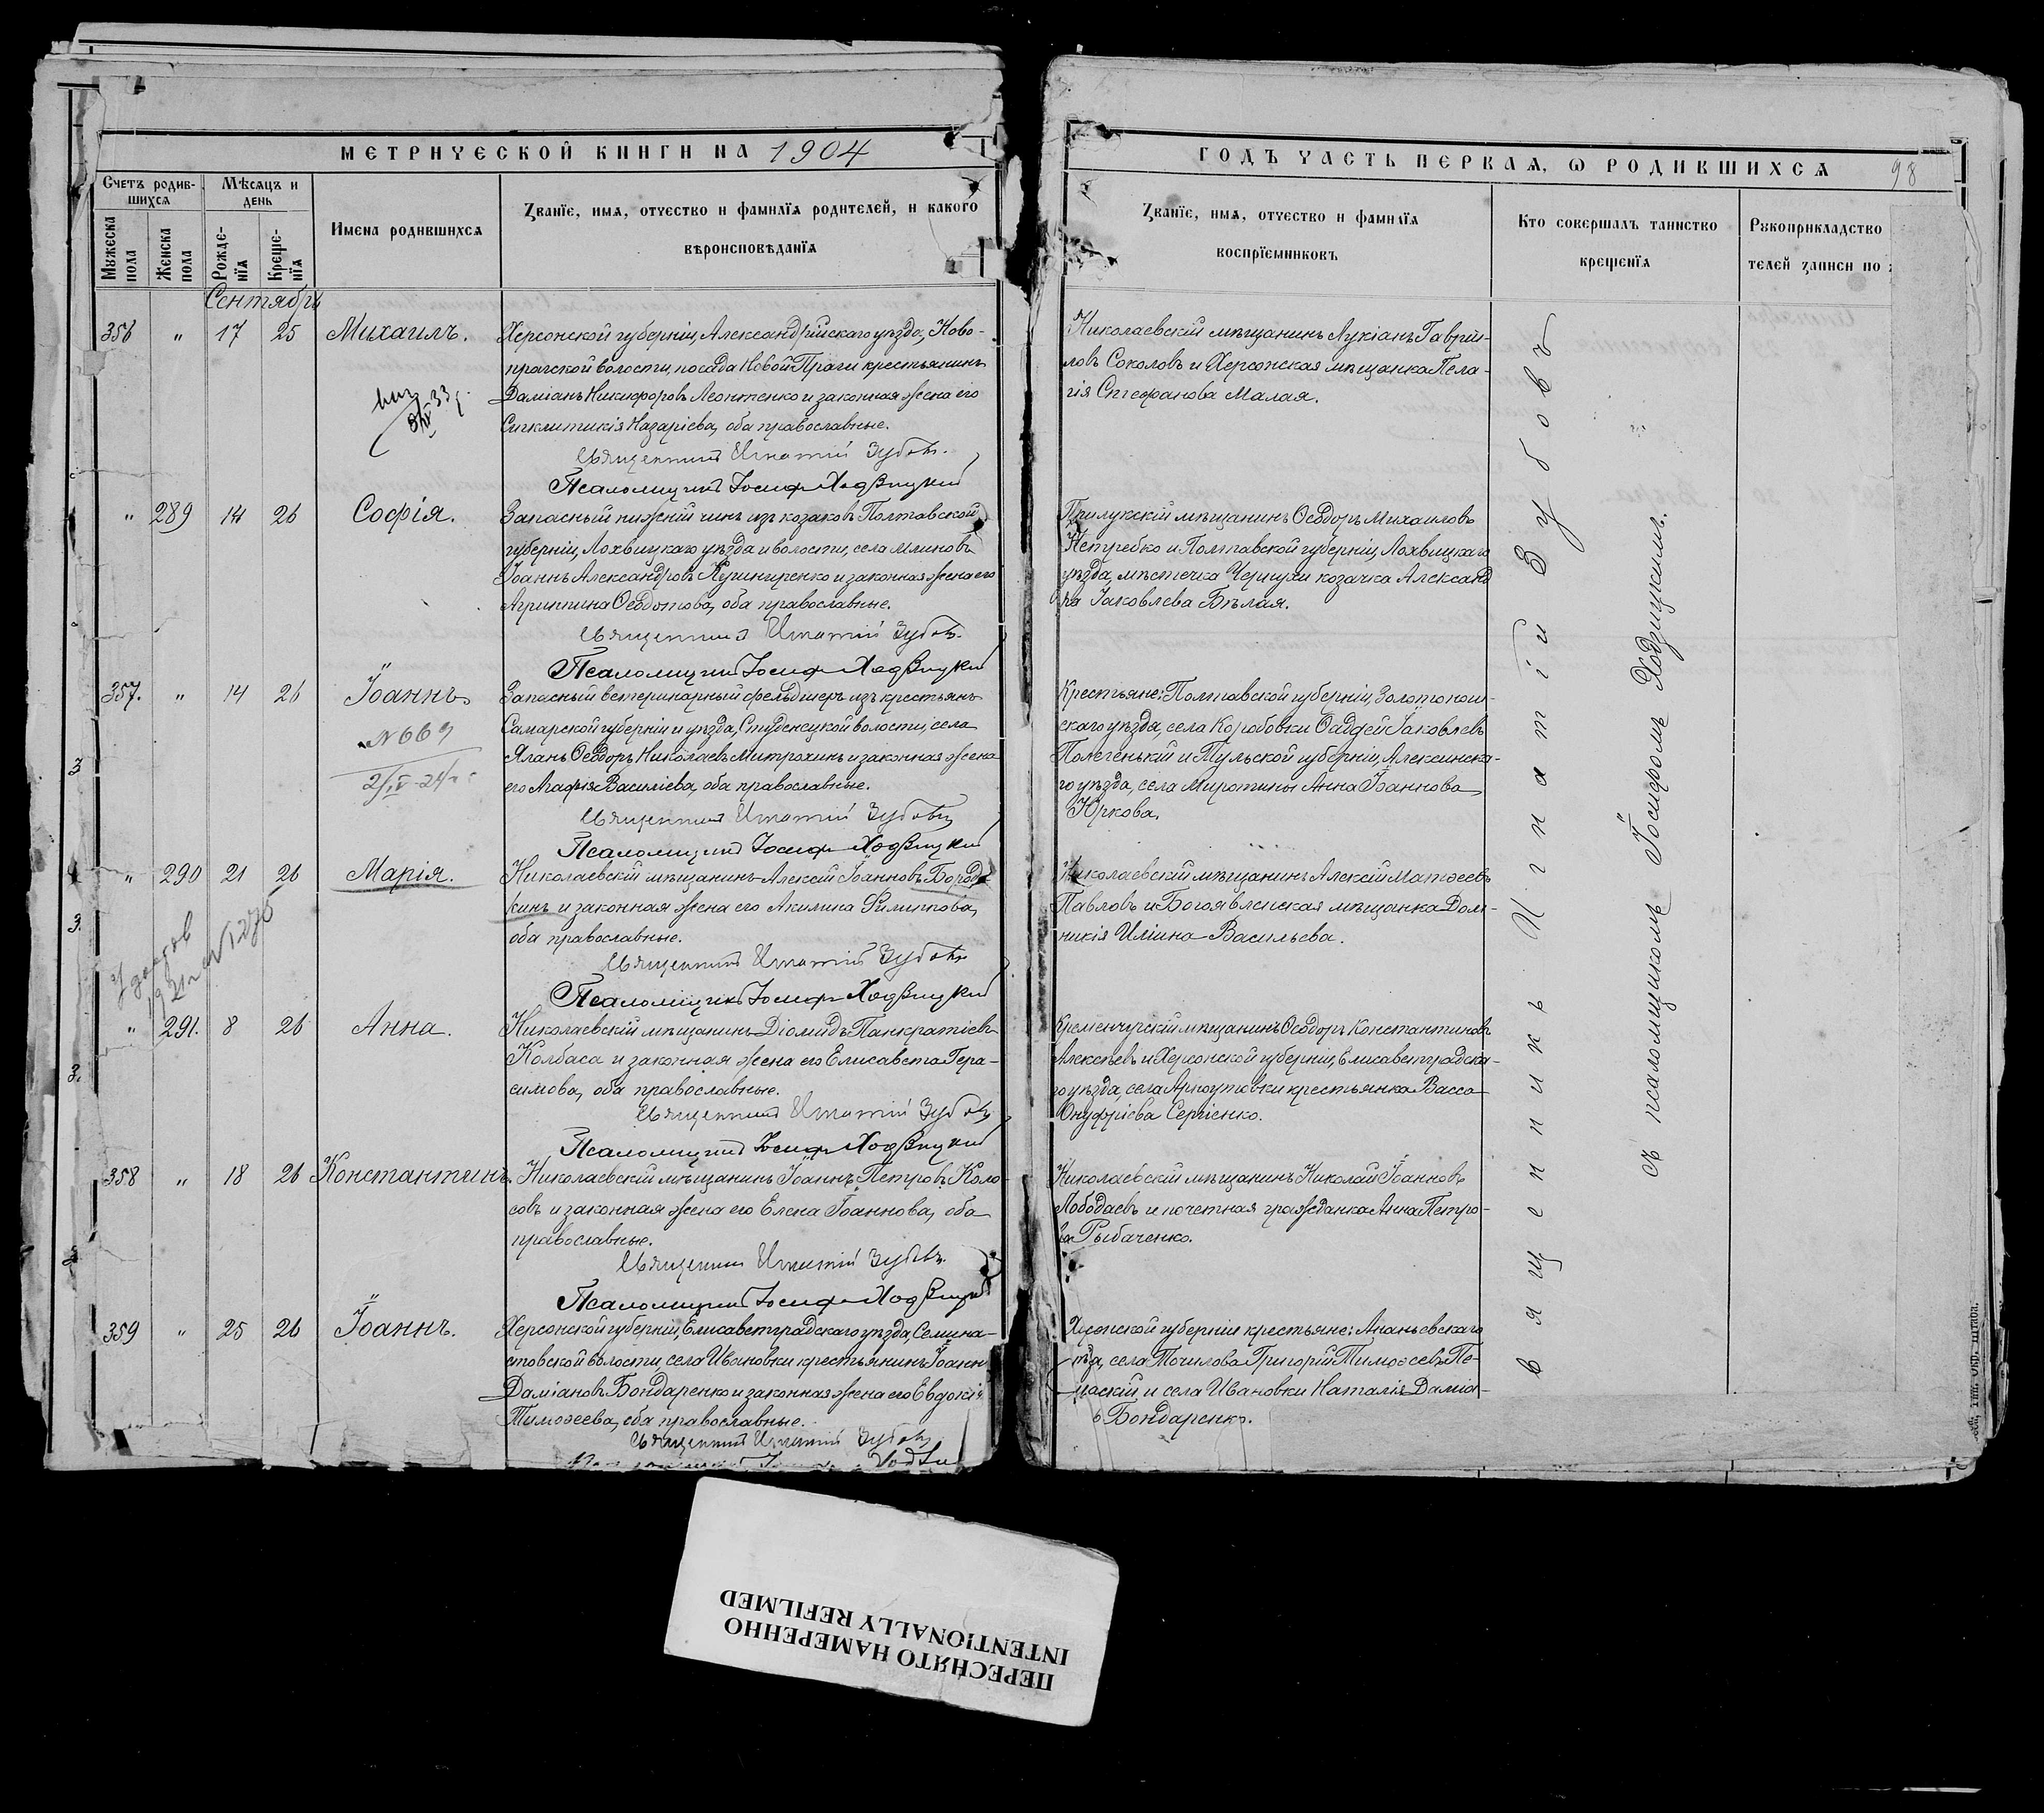 МЕТРИЧЕСКОЙ КНИГИ НА 1904
ГОДЪ ЧАСТЬ ПЕРВАЯ, Ѡ РОДИВШИХСЯ
98
Счетъ родив-
шихся
Мѣсяцъ и
день
Мужеска
пола
Женска
пола
Рожде-
нїя
Креще-
нїя
Имена родившихся
Званїе, имя, отчество и фамилїя родителей, и какого
вѣроисповѣданїя
Званїе, имя, отчество и фамилїя
воспрїемниковъ
Кто совершалъ таинство
крещенїя
Рукоприкладство
телей записи по
Сентябрь
356 " 17 25 Михаилъ.
Херсонской губерніи, Александрійскаго уѣзда, Ново-
прагской волости, посада Новой Праги крестьянинъ
Даміанъ Никифоровъ Леонтенко и законная жена его
Сигклитикія Назаріева, оба православные.
Священникъ Игнатій Зубовъ.
Псаломщикъ Іосифъ Ходзицкій
Николаевскій мѣщанинъ Лукіанъ Гаврии-
ловъ Соколовъ и Херсонская мѣщанка Пела-
гія Стефанова Малая.
" 289 14 26 Софія.
Запасный нижній чинъ изъ козаковъ Полтавской
губерніи, Лохвицкаго уѣзда и волости, села Млиновъ
Іоаннъ Александровъ
и законная жена его
Агриппина Ѳеодотова, оба православные.
Священникъ Игнатій Зубовъ.
Псаломщикъ Іосифъ Ходзицкій
Прилукскій мѣщанинъ Ѳеодоръ Михаиловъ
Нетребко и Полтавской губерніи, Лохвицкаго
уѣзда, мѣстечка Чернухи козачка Александ
ра Іаковлева Бѣлая.
357. " 14 26 Іоаннъ.
№ 669
Запасный ветеринарный фельдшеръ изъ крестьянъ
Самарской губерніи и уѣзда, Студенецкой волости, села
Яланъ Ѳеодоръ Николаевъ Митрохинъ и законная жена
его Агафія Василіева, оба православные.
Священникъ Игнатій Зубовъ
Псаломщикъ Іосифъ Ходзицкій
Крестьяне: Полтавской губерніи, Золотонош-
скаго уѣзда, села Коробовки Ѳаддей Іаковлевъ
Полегенькій и Тульской губерніи, Алексинска-
го уѣзда, села Миротины Анна Іоаннова
Юркова.
" 290 21 26 Марія.
1921 г. № 1270
Николаевскій мѣщанинъ Алексій Іоанновъ Бород-
кинъ и законная жена его Акилина Филиппова,
оба православные.
Священникъ Игнатій Зубовъ
Псаломщикъ Іосифъ Ходзицкій
Николаевскій мѣщанинъ Алексій Матѳеевъ
Павловъ и Богоявленская мѣщанка Дом-
никія Иліина Васильева.
" 291. 8 26 Анна.
Николаевскій мѣщанинъ Діомидъ Панкратіевъ
Колбаса и законная жена его Елисавета Гера-
симова, оба православные.
Священникъ Игнатій Зубовъ
Псаломщикъ Іосифъ Ходзицкій
Кременчугскій мѣщанинъ Ѳеодоръ Константиновъ
Алексѣевъ и Херсонской губерніи, Елисаветградска-
го уѣзда, села Арнаутовки крестьянка Васса
Онуфріева Сергіенко.
358 " 18 26 Константинъ.
Николаевскій мѣщанинъ Іоаннъ Петровъ Коло-
совъ и законная жена его Елена Іоаннова, оба
православные.
Священникъ Игнатій Зубовъ.
Псаломщикъ Іосифъ Ходзицкій
Николаевскій мѣщанинъ Николай Іоанновъ
Лободаевъ и почетная гражданка Анна Петро-
ва Рыбаченко.
359 " 25 26 Іоаннъ.
Херсонской губерніи, Елисаветградскаго уѣзда, Семена-
стовской волости, села Ивановки крестьянинъ Іоаннъ
Даміановъ Бондаренко и законная жена его Евдокія
Тимоѳеева, оба православные.
Священникъ Игнатій Зубовъ
Херсонской губерніи крестьяне: Ананьевскаго
уѣзда, села Точилова Григорій Тимоѳеевъ
и села Ивановки Наталія Даміа-
Бондаренко.
Священникъ Игнатій Зубовъ
съ псаломщикомъ Іосифомъ Ходзицкимъ.
Тип. Окр. штаба.
ПЕРЕСНЯТО НАМЕРЕННО
INTENTIONALLY REFILMED